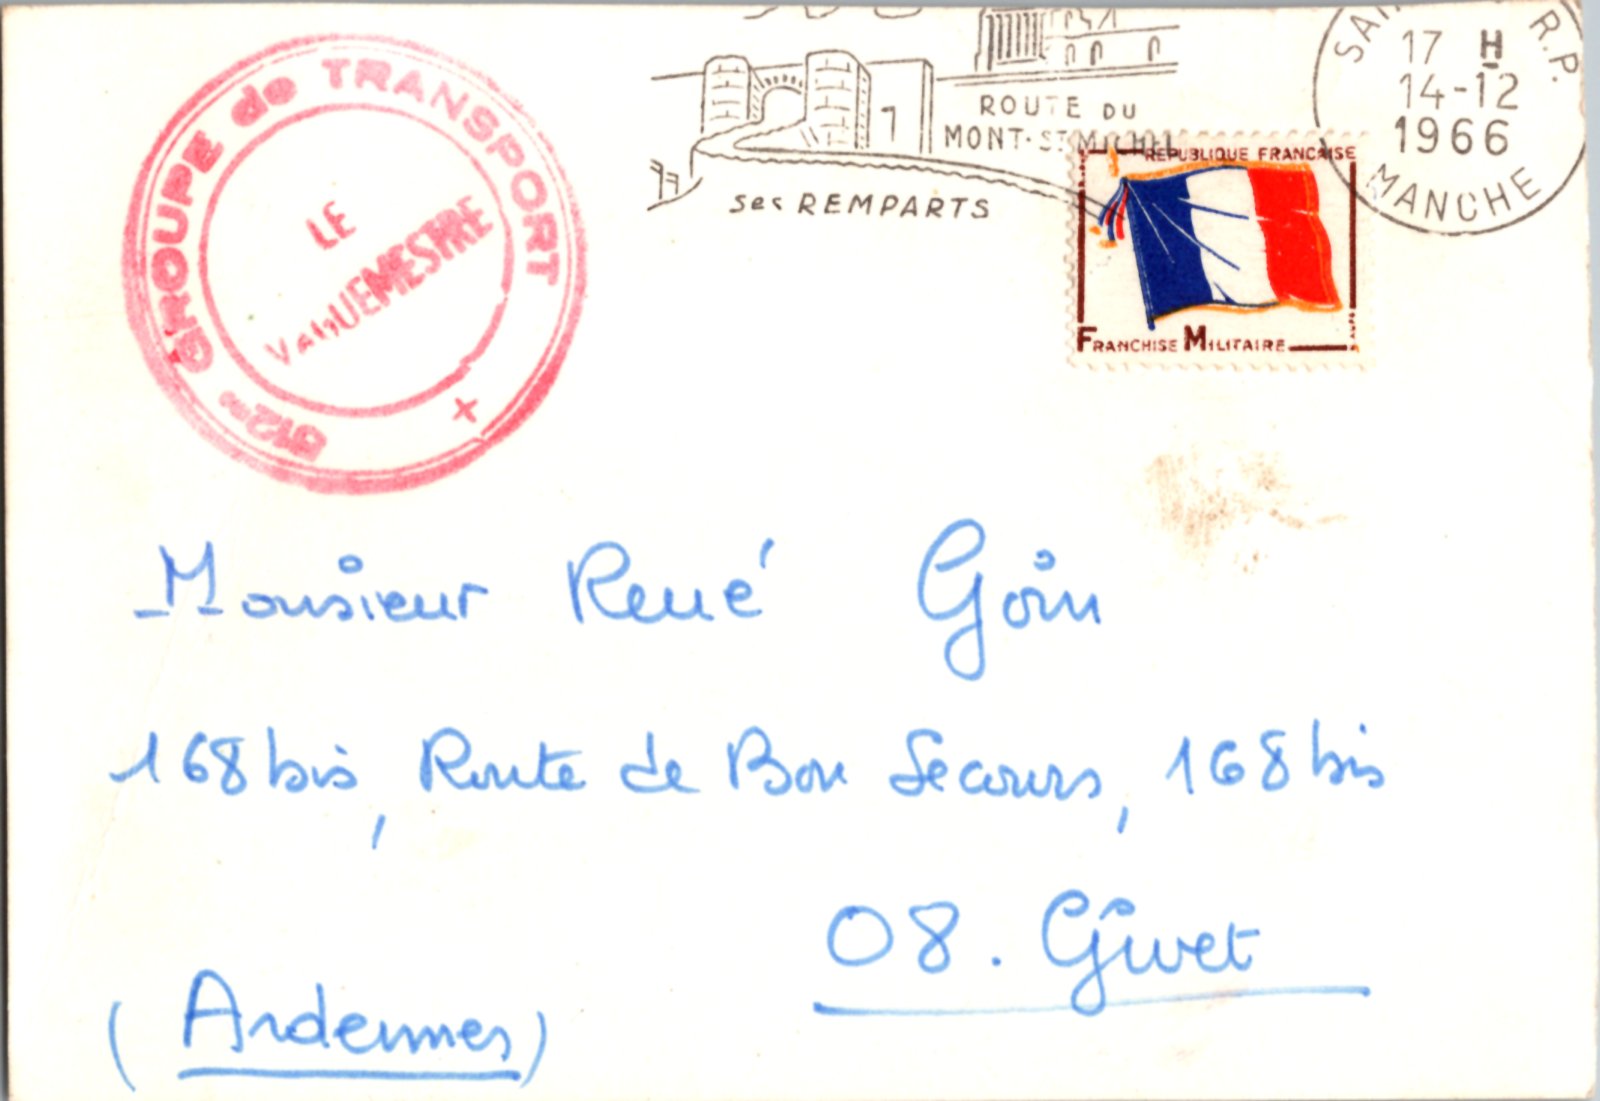 GROUPE de TRANSPORT
LE
VAGUEMESTRE
ROUTE DU
MONT-ST MICHEL
ses REMPARTS
R.P.
17 H
14-12
1966
MANCHE
REPUBLIQUE FRANCAISE
FRANCHISE MILITAIRE
Monsieur René Goin
168 bis, Route de Bon Secours, 168 bis
08. Givet
(Ardennes)